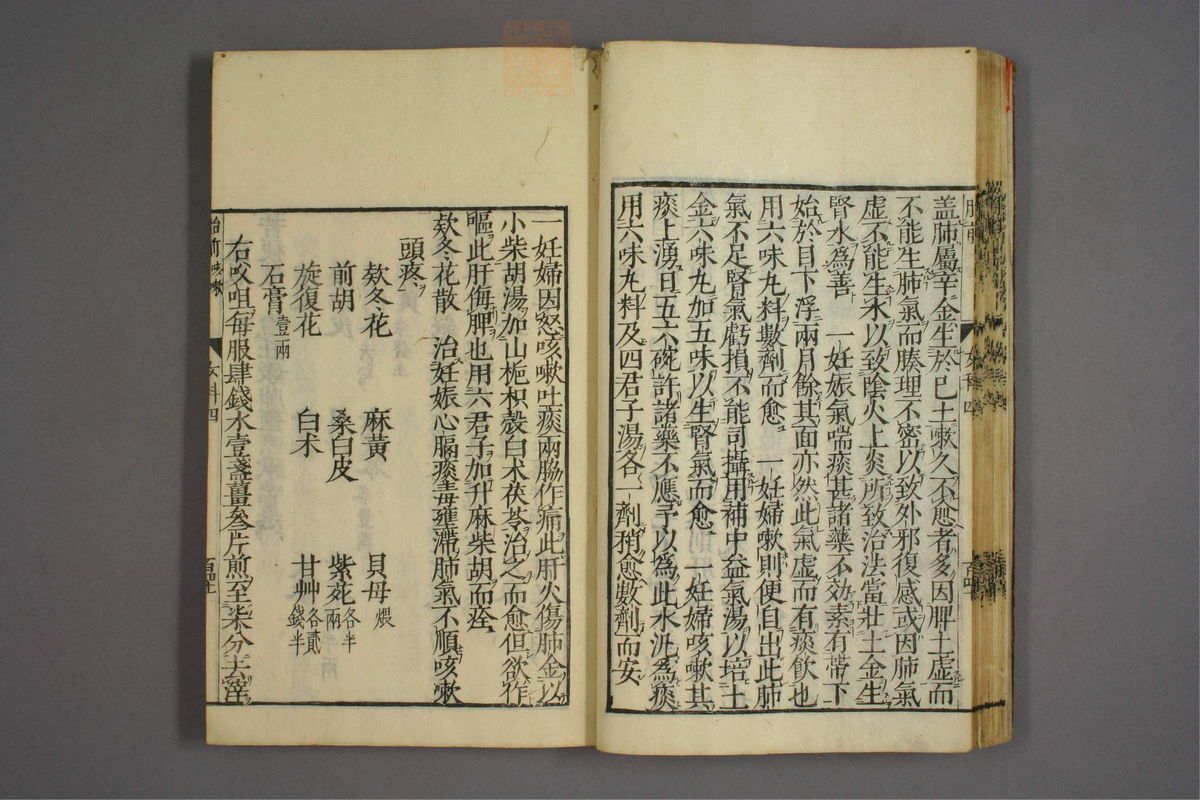 盖肺屬辛金生於己土嗽久不愈者多因脾土虛而
不能生肺氣而腠理不密以致外邪復感或因肺氣
虛不能生水以致陰火上炎所致治法當壯土金生
腎水爲善　一妊娠氣喘痰甚諸藥不効素有帶下
始於目下浮兩月餘其面亦然此氣虛而有痰飲也
用六味丸料數劑而愈　一妊婦嗽則便自出此肺
氣不足腎氣虧損不能司攝用補中益氣湯以培土
金六味丸加五味以生腎氣而愈　一妊婦咳嗽其
痰上湧日五六碗許諸藥不應予以爲此水泛爲痰
用六味丸料及四君子湯各一劑稍愈數劑而安
一妊婦因怒咳嗽吐痰兩脇作痛此肝火傷肺金以
小柴胡湯加山梔枳殼白术茯苓治之而愈但欲作
嘔此肝侮脾也用六君子加升麻柴胡而痊
欵冬花散　治妊娠心膈痰毒壅滯肺氣不順咳嗽
頭疼
欵冬花　麻黄　貝母煨
前胡　桑白皮　紫菀各半兩
旋復花　白术　甘艸各貳錢半
石膏壹兩
右㕮咀每服肆錢水壹盞薑叁片煎至柒分去滓
胎前咳嗽　女科四